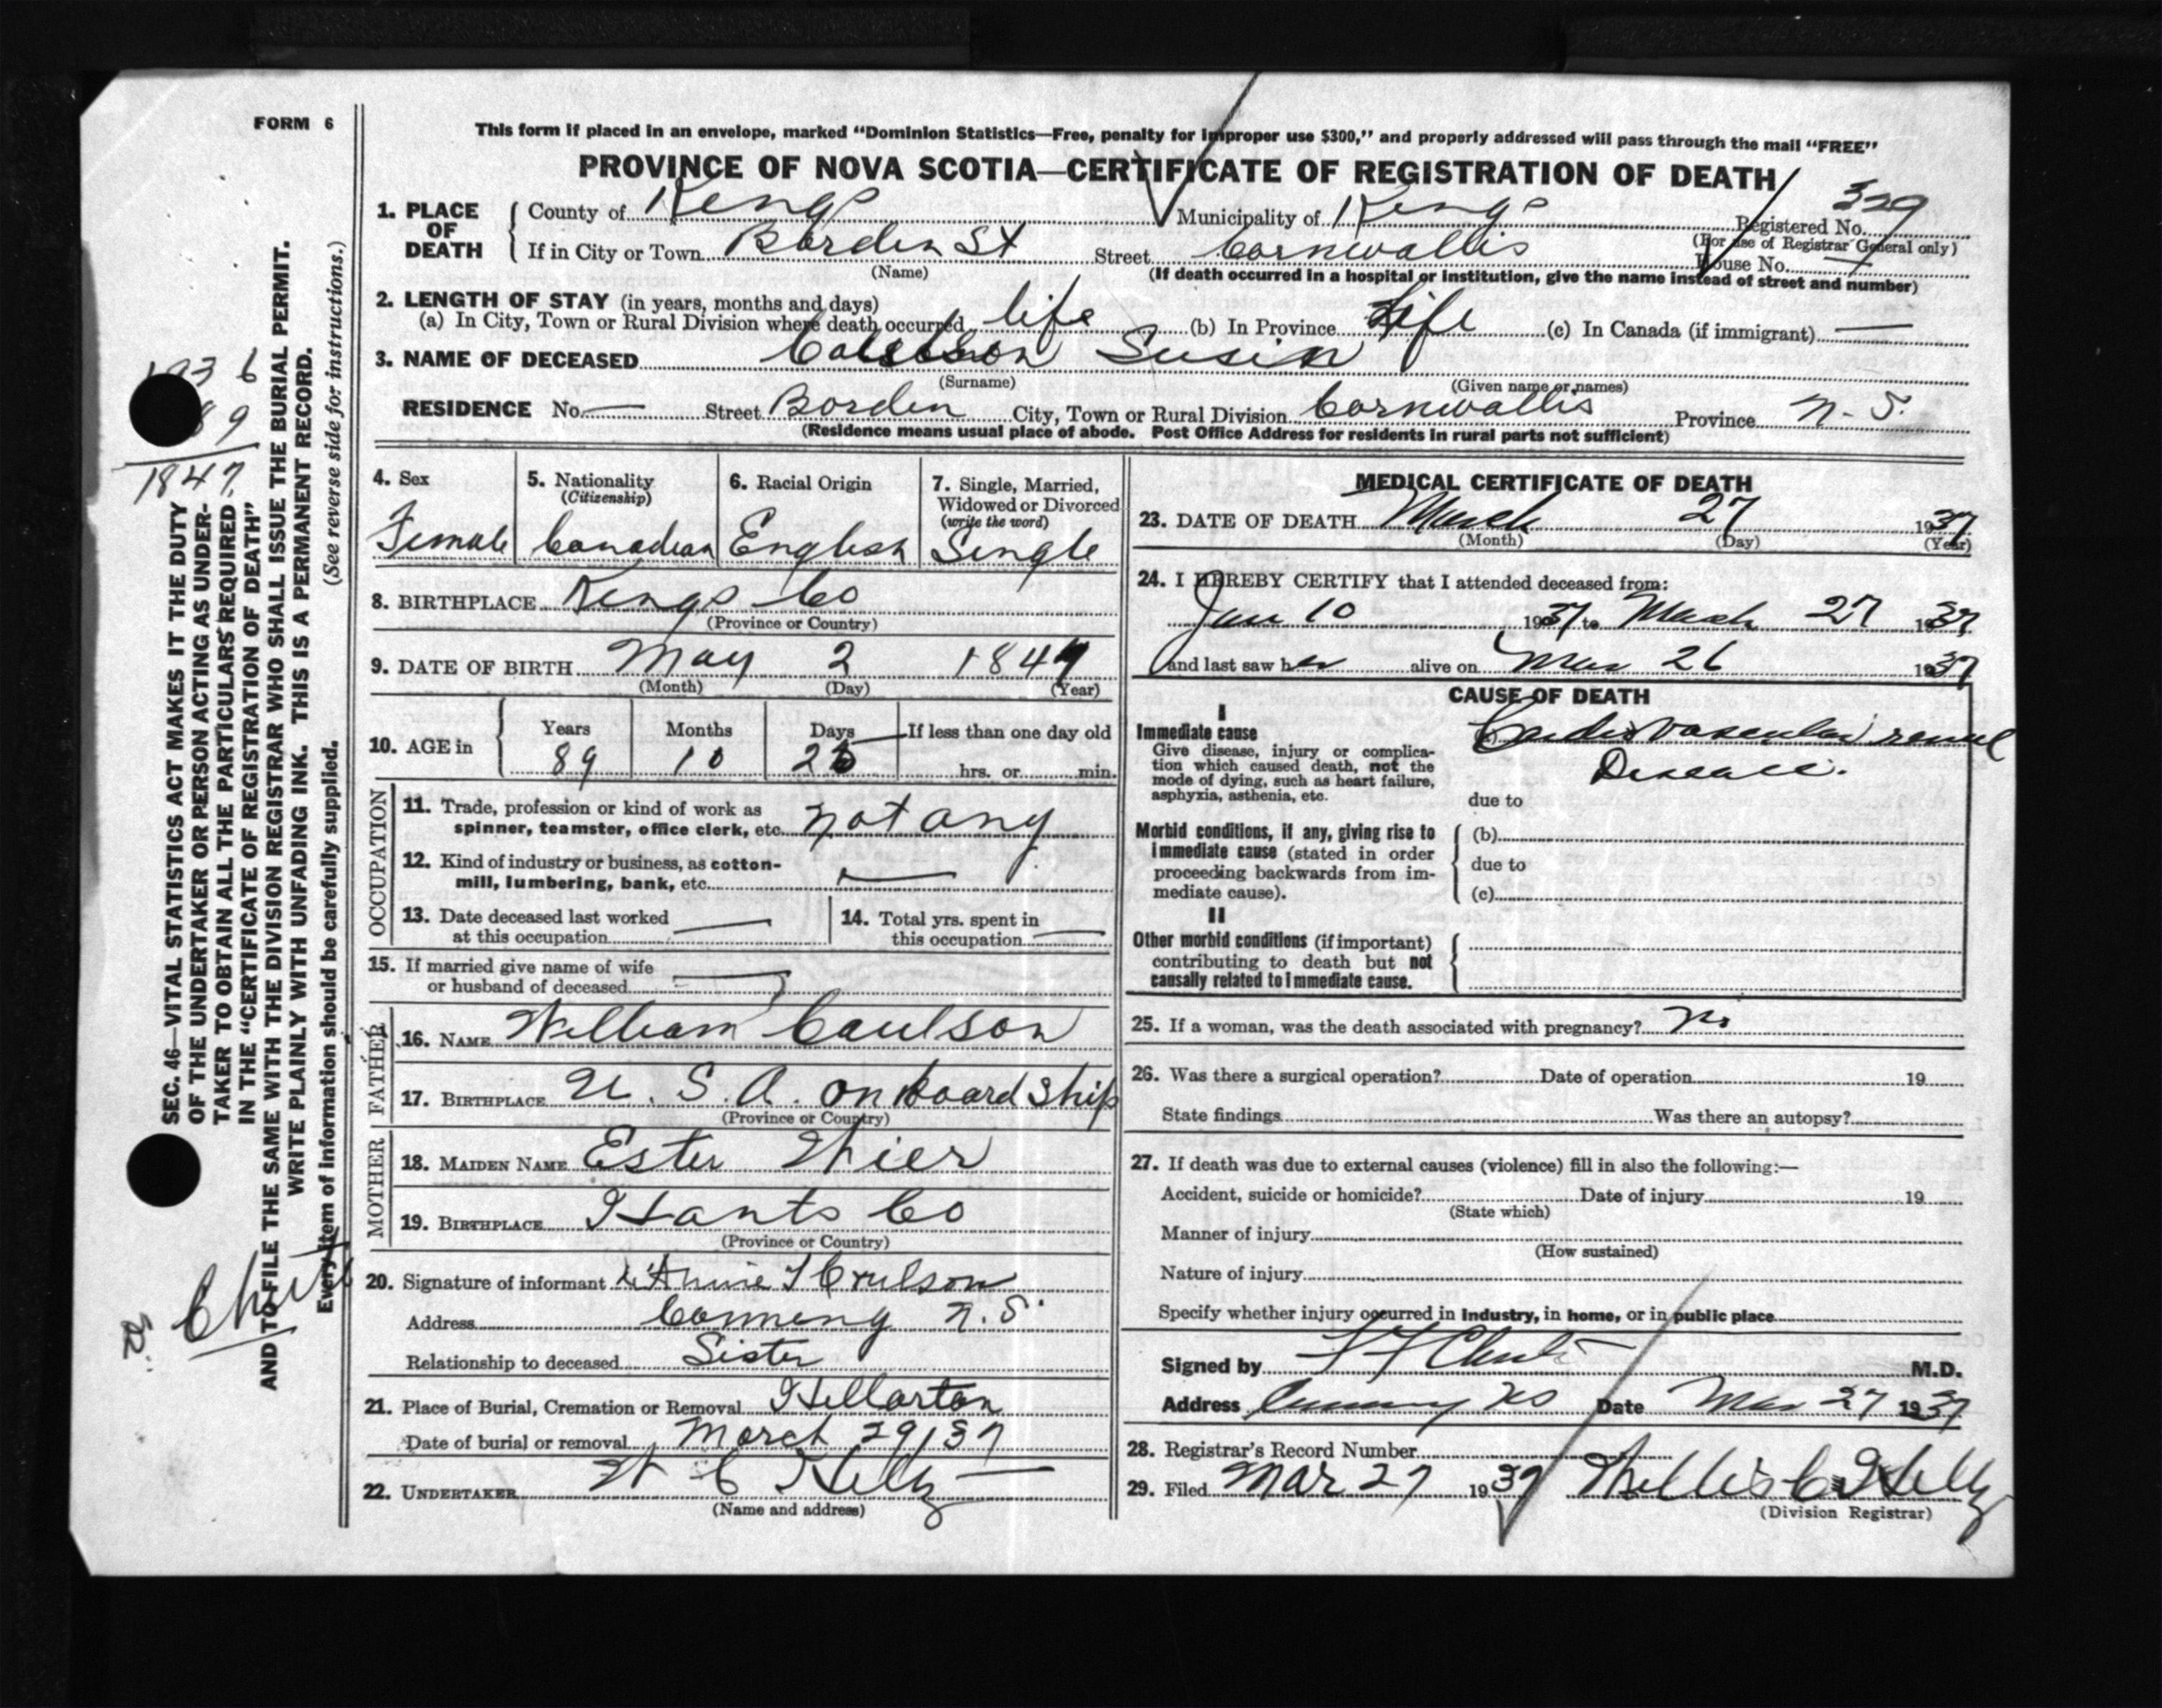 FORM 6
This form if placed in an envelope, marked “Dominion Statistics—Free, penalty for improper use $300,” and properly addressed will pass through the mail “FREE”
PROVINCE OF NOVA SCOTIA—CERTIFICATE OF REGISTRATION OF DEATH
1. PLACE OF DEATH
County of Kings Municipality of Kings Registered No. 329
(For use of Registrar General only)
If in City or Town Borden St Street Cornwallis House No. —
(Name) (If death occurred in a hospital or institution, give the name instead of street and number)
2. LENGTH OF STAY (in years, months and days)
(a) In City, Town or Rural Division where death occurred life (b) In Province Life (c) In Canada (if immigrant) —
3. NAME OF DECEASED Susie
(Surname) (Given name or names)
RESIDENCE No. — Street Borden City, Town or Rural Division Cornwallis Province N. S.
(Residence means usual place of abode. Post Office Address for residents in rural parts not sufficient)
4. Sex
Female
5. Nationality
(Citizenship)
Canadian
6. Racial Origin
English
7. Single, Married,
Widowed or Divorced
(write the word)
Single
8. BIRTHPLACE Kings Co
(Province or Country)
9. DATE OF BIRTH May 2 1847
(Month) (Day) (Year)
10. AGE in
Years Months Days If less than one day old
89 10 hrs. or min.
OCCUPATION
11. Trade, profession or kind of work as
spinner, teamster, office clerk, etc. not any
12. Kind of industry or business, as cotton-
mill, lumbering, bank, etc. —
13. Date deceased last worked
at this occupation —
14. Total yrs. spent in
this occupation —
15. If married give name of wife
or husband of deceased —
FATHER
16. NAME William Caulson
17. BIRTHPLACE U. S. A. on board ship
(Province or Country)
MOTHER
18. MAIDEN NAME Ester Wier
19. BIRTHPLACE Hants Co
(Province or Country)
20. Signature of informant Annie Coulson
Address Canning N. S.
Relationship to deceased Sister
21. Place of Burial, Cremation or Removal Hillarton
Date of burial or removal March 29/37
22. UNDERTAKER W C Kelly —
(Name and address)
MEDICAL CERTIFICATE OF DEATH
23. DATE OF DEATH March 27 1937
(Month) (Day) (Year)
24. I HEREBY CERTIFY that I attended deceased from:
Jan 10 1937 to March 27 1937
and last saw her alive on Mar 26 1937
CAUSE OF DEATH
I
Immediate cause
Give disease, injury or complica-
tion which caused death, not the
mode of dying, such as heart failure,
asphyxia, asthenia, etc.
(a) Cardio vascular renal
Disease.
due to
Morbid conditions, if any, giving rise to
immediate cause (stated in order
proceeding backwards from im-
mediate cause).
(b)
due to
(c)
II
Other morbid conditions (if important)
contributing to death but not
causally related to immediate cause.
25. If a woman, was the death associated with pregnancy? No
26. Was there a surgical operation? Date of operation 19
State findings Was there an autopsy?
27. If death was due to external causes (violence) fill in also the following:—
Accident, suicide or homicide? Date of injury 19
(State which)
Manner of injury
(How sustained)
Nature of injury
Specify whether injury occurred in industry, in home, or in public place
Signed by Chute M.D.
Address Canning NS Date Mar 27 1937
28. Registrar's Record Number
29. Filed Mar 27 1937 Kelly
(Division Registrar)
SEC. 46—VITAL STATISTICS ACT MAKES IT THE DUTY
OF THE UNDERTAKER OR PERSON ACTING AS UNDER-
TAKER TO OBTAIN ALL THE PARTICULARS REQUIRED
IN THE “CERTIFICATE OF REGISTRATION OF DEATH”
AND TO FILE THE SAME WITH THE DIVISION REGISTRAR WHO SHALL ISSUE THE BURIAL PERMIT.
WRITE PLAINLY WITH UNFADING INK. THIS IS A PERMANENT RECORD.
Every item of information should be carefully supplied. (See reverse side for instructions.)
1936
89
1847
Chute